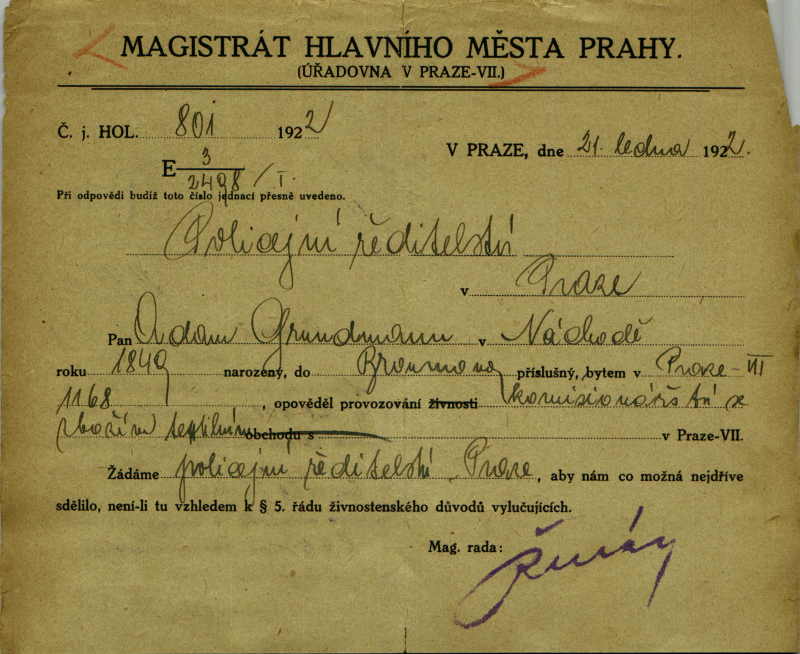 MAGISTRÁT HLAVNÍHO MĚSTA PRAHY.
(ÚŘADOVNA V PRAZE-VII.)
Č. j. HOL. 801 1922
V PRAZE, dne 21. ledna 1922.
E 3/2498/I.
Při odpovědi budiž toto číslo jednací přesně uvedeno.
Policejní ředitelství
v Praze
Pan Adam Grundmann v Náchodě
roku 1849 narozený, do Broumova příslušný, bytem v Praze-VII
1168, opověděl provozování živnosti komisionářství se
zbožím textilním obchodu s v Praze-VII.
Žádáme policejní ředitelství Praze, aby nám co možná nejdříve
sdělilo, není-li tu vzhledem k § 5. řádu živnostenského důvodů vylučujících.
Mag. rada: